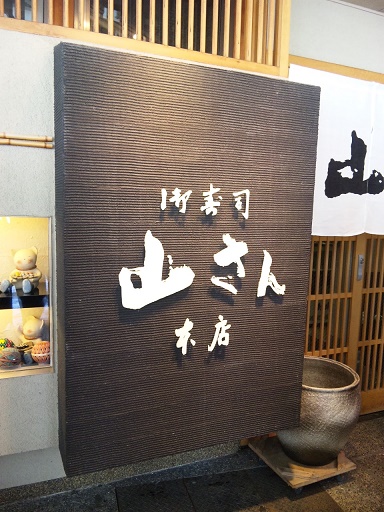 御寿司
山さん
本店
山